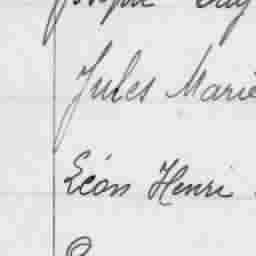 Jules Marie
Léon Henri